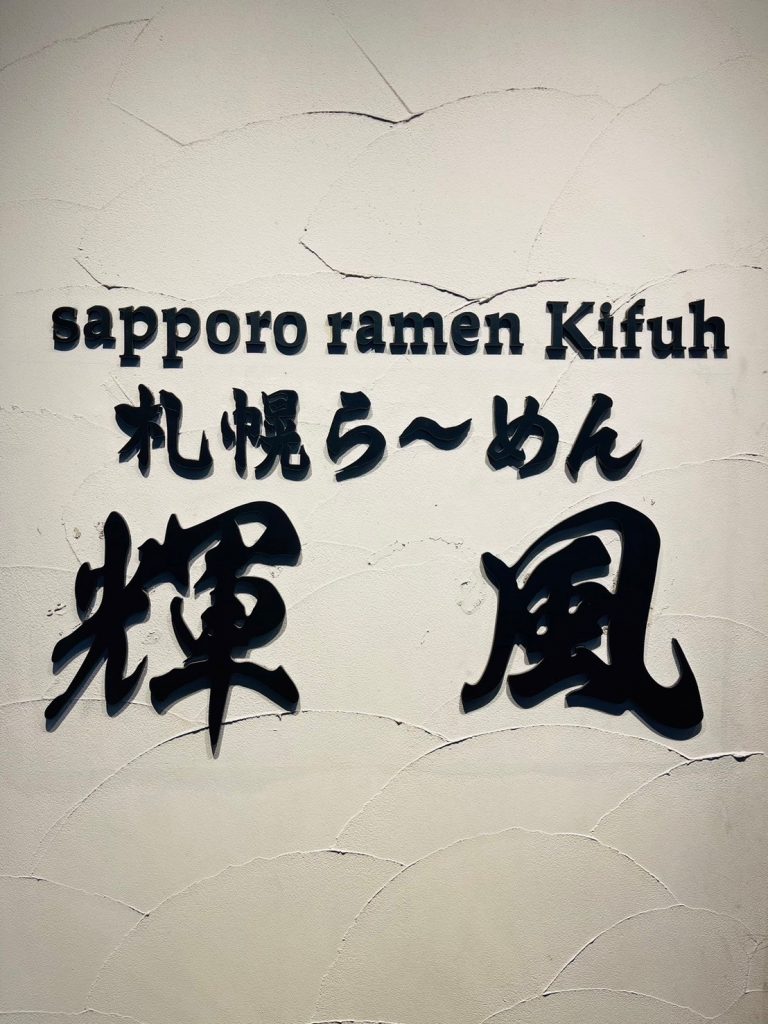 sapporo ramen Kifuh
札幌ら〜めん
輝風